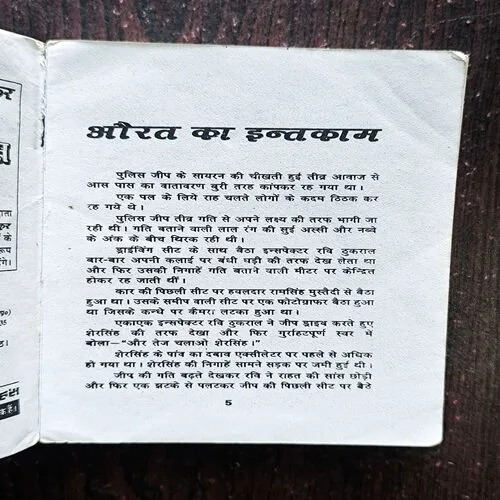 औरत का इन्तकाम
पुलिस जीप के सायरन की चीखती हुई तीव्र आवाज से
आस पास का वातावरण बुरी तरह कांपकर रह गया था।
एक पल के लिये राह चलते लोगों के कदम ठिठक कर
रह गये थे।
पुलिस जीप तीव्र गति से अपने लक्ष्य की तरफ भागी जा
रही थी। गति बताने वाली लाल रंग की सुई अस्सी और नब्बे
के अंक के बीच थिरक रही थी।
ड्राईविंग सीट के साथ बैठा इन्सपेक्टर रवि ठुकराल
बार-बार अपनी कलाई पर बंधी घड़ी की तरफ देख लेता था
और फिर उसकी निगाहें गति बताने वाली मीटर पर केन्द्रित
होकर रह जाती थीं।
कार की पिछली सीट पर हवलदार रामसिंह मुस्तैदी से बैठा
हुआ था। उसके समीप वाली सीट पर एक फोटोग्राफर बैठा हुआ
था जिसके कन्धे पर कैमरा लटका हुआ था।
एकाएक इन्सपेक्टर रवि ठुकराल ने जीप ड्राइव करते हुए
शेरसिंह की तरफ देखा और फिर गुर्राहटपूर्ण स्वर में
बोला—"और तेज चलाओ शेरसिंह।"
शेरसिंह के पांव का दबाव एक्सीलेटर पर पहले से अधिक
हो गया था। शेरसिंह की निगाहें सामने सड़क पर जमी हुई थी।
जीप की गति बढ़ते देखकर रवि ने राहत की सांस छोड़ी
और फिर एक झटके से पलटकर जीप की पिछली सीट पर बैठे
5